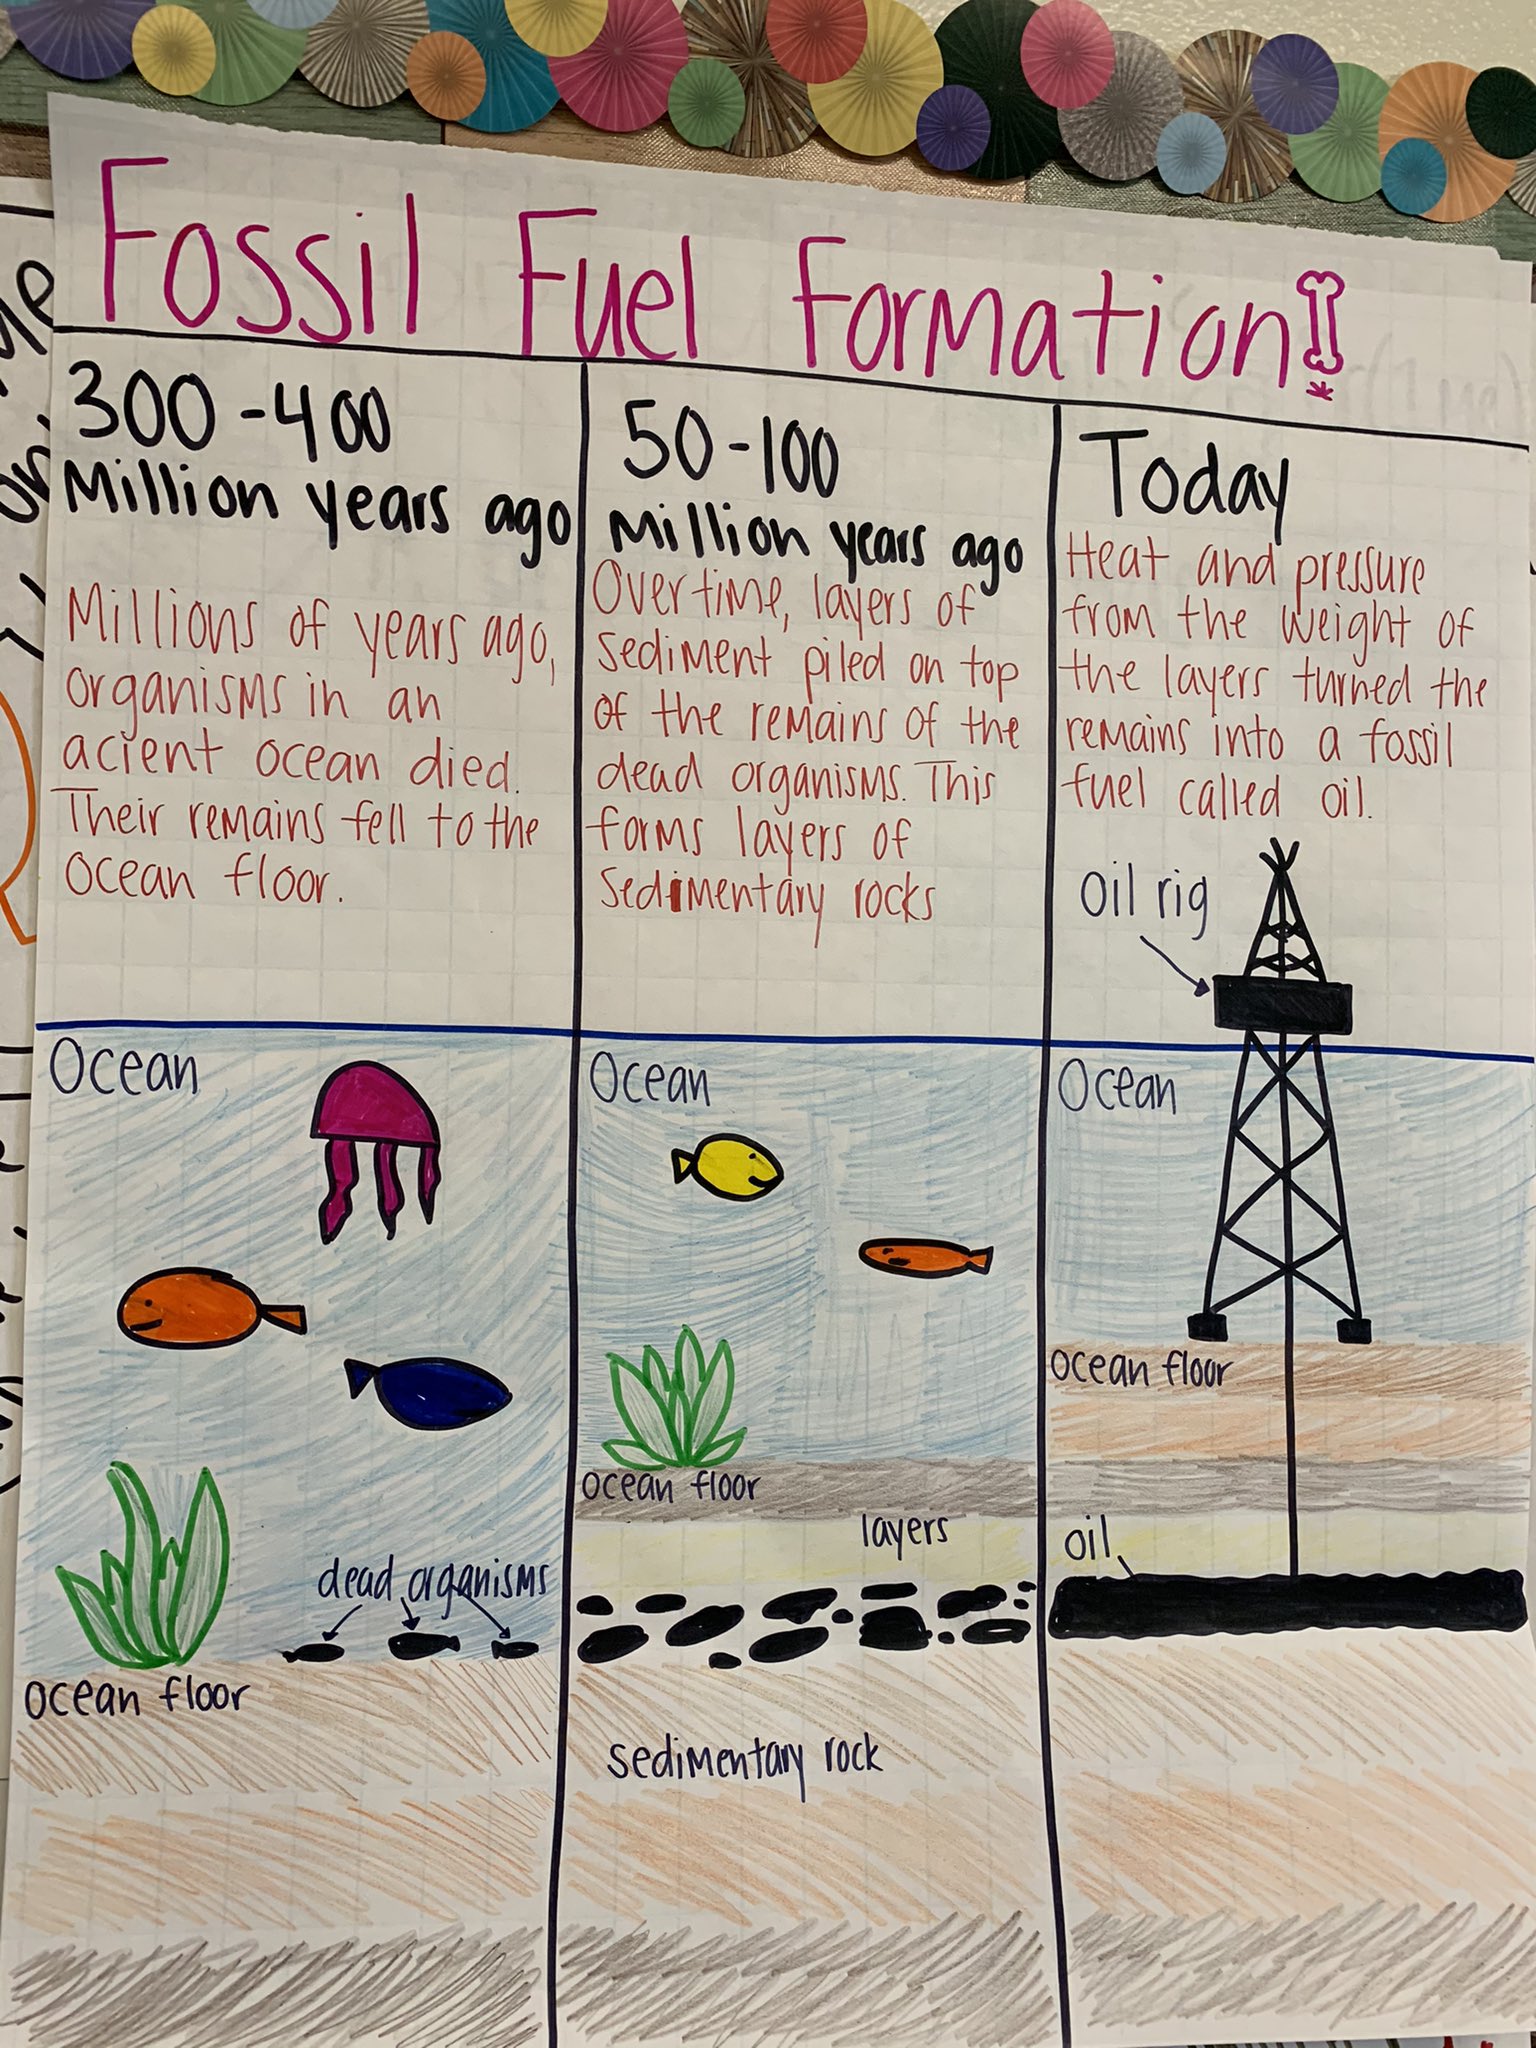 Fossil Fuel Formation!
300-400
Million years ago
Millions of years ago,
organisms in an
acient ocean died.
Their remains fell to the
ocean floor.
50-100
Million years ago
Over time, layers of
sediment piled on top
of the remains of the
dead organisms. This
forms layers of
Sedimentary rocks
Today
Heat and pressure
from the weight of
the layers turned the
remains into a fossil
fuel called oil.
Oil rig
Ocean
dead organisms
Ocean floor
Ocean
Ocean floor
layers
Sedimentary rock
Ocean
Ocean floor
oil